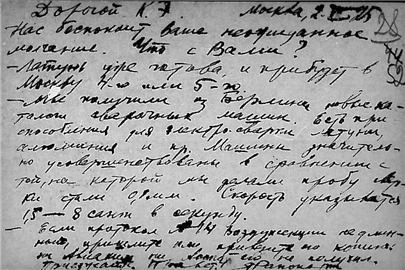 Дорогой К. Э. Москва, 2.
Нас беспокоит Ваше неожиданное
молчание. Что с Вами?
– Латунь уже готова и прибудет в
Москву 4-го или 5-го.
– Мы получили из Берлина новые ка-
талоги сварочных машин. Есть при
способления для электросварки латуни,
алюминия и пр. Машины значитель-
но усовершенствованы в сравнении с
той, на которой мы делали пробу
ки стали 0,8мм. Скорость указывается
15 – 8 сант в секунду.
– Если протокол №14
пришлите